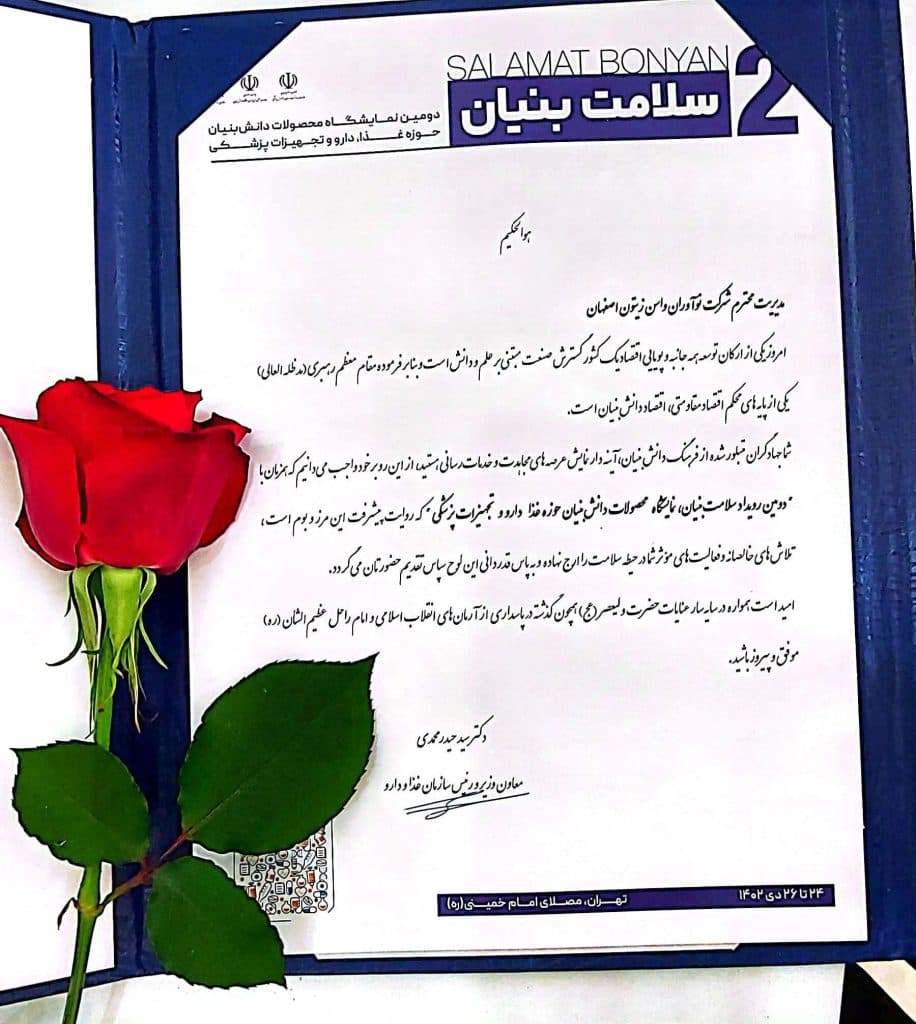 SALAMAT BONYAN
سلامت بنیان 2
دومین نمایشگاه محصولات دانش‌بنیان
حوزه غذا، دارو و تجهیزات پزشکی
هوالحکیم
مدیریت محترم شرکت نوآوران واسن زیتون اصفهان
امروز یکی از ارکان توسعه همه جانبه و پویایی اقتصاد یک کشور گسترش صنعت مبتنی بر علم و دانش است و بنابر فرموده مقام معظم رهبری (مدظله العالی)
یکی از پایه‌های محکم اقتصاد مقاومتی، اقتصاد دانش بنیان است.
شما جهادگران متبلور شده از فرهنگ دانش بنیان، آینه دار نمایش عرصه‌های مجاهدت و خدمات رسانی هستید، از این رو بر خود واجب می‌دانیم که همزمان با
"دومین رویداد سلامت بنیان، نمایشگاه محصولات دانش بنیان حوزه غذا دارو و تجهیزات پزشکی" که روایت پیشرفت این مرز و بوم است،
تلاش‌های خالصانه و فعالیت‌های مؤثر شما در حیطه سلامت را ارج نهاده و به پاس قدردانی این لوح سپاس تقدیم حضورتان می‌گردد.
امید است همواره در سایه سار عنایات حضرت ولیعصر (عج) همچون گذشته در پاسداری از آرمان‌های انقلاب اسلامی و امام راحل عظیم الشان (ره)
موفق و پیروز باشید.
دکتر سید حیدر محمدی
معاون وزیر و رئیس سازمان غذا و دارو
۲۴ تا ۲۶ دی ۱۴۰۲ تهران، مصلای امام خمینی (ره)